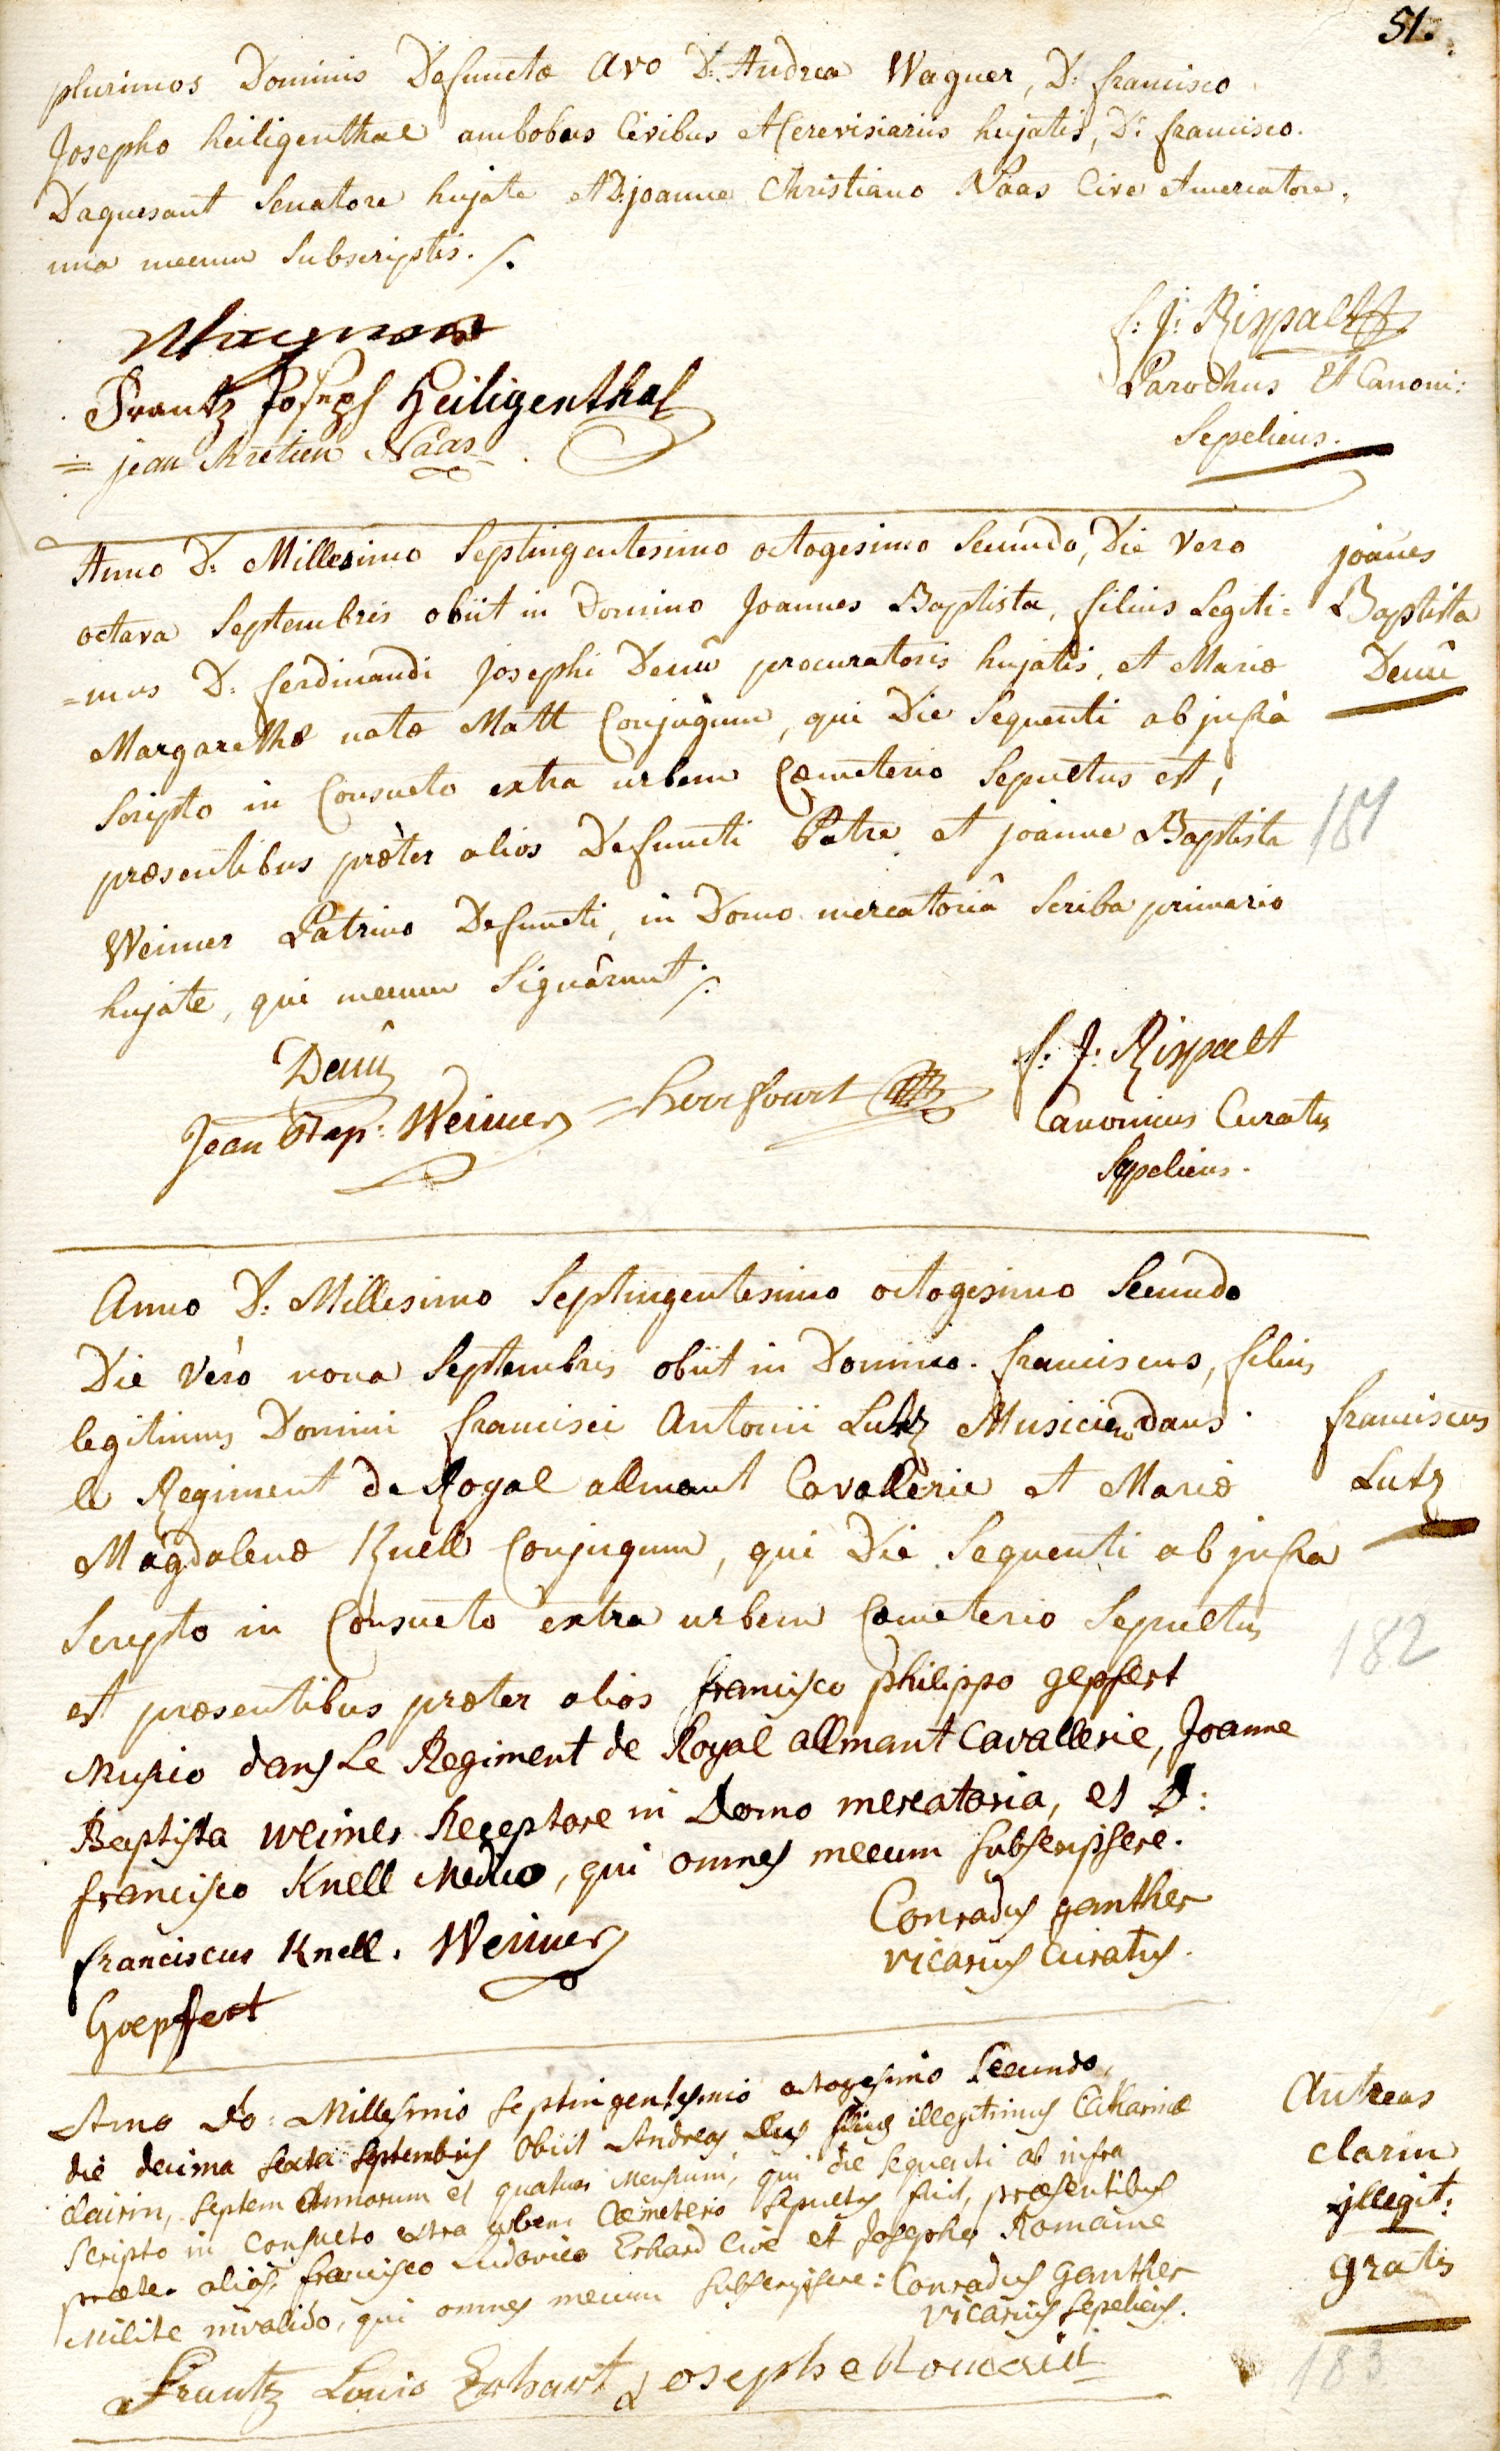 51.
plurimos Dominis Defunctæ avo D. Andrea Wagner, D: francisco
Josepho heiligenthal ambobus Civibus et Cerevisiariis hujatis, D: francisco
Daguesant Senatore hujate et D. joanne Christiano Naas Cive et mercatore,
una mecum Subscriptis. /.
Wagner
Frantz Joseph Heiligenthal
= jean Kretien Naas
f: J: Rippalt
Parochus et Canoni:
Sepeliens.
Anno D: Millesimo Septingentesimo octogesimo Secundo, Die vero
octava Septembris obiit in Domino Joannes Baptista, filius Legiti=
=mus D: ferdinandi Josephi Denû procuratoris hujatis, et Mariæ
Margarethæ natæ Matt Conjugum, qui Die Sequenti ab jnfrà
Scripto in Consueto extra urbem Cæmeterio Sepultus est,
præsentibus præter alios Defuncti Patre et joanne Baptista
Weimer Patrino Defuncti, in Domo mercatoriâ Scriba primario
hujate, qui mecum Signârunt /.
joañes
Baptista
Denû
181
Denû
Jean Bap: Weimer
= herrfourt
f. J. Rippalt
Canonicus Curatus
Sepeliens.
Anno D: Millesimo Septingentesimo octogesimo Secundo
Die Vero nona Septembris obiit in Domino. franciscus, filius
legitimus Domini francisci Antonii Lutz Musicien dans
le Regiment de Royal allmant Cavallerie et Mariæ
Magdalenæ Knell Conjugum, qui Die Sequenti ab jnfra
Scripto in Consueto extra urbem Cæmeterio Sepultus
est præsentibus præter alios francisco philippo gepfert
Musico dans Le Regiment de Royal allmant Cavallerie, Joanne
Baptista weimer Receptore in Domo mercatoria, et D:
francisco Knell Medico, qui omnes mecum subscripsere.
franciscus
Lutz
182
Conradus ganther
vicarius Curatus.
franciscus Knell. Weimer
Goepfert
Anno Do: Millesimo septingentesimo octogesimo Secundo,
die decima sexta septembris obiit Andreas filius illegitimus Catharinæ
clairin, septem Annorum et quatuor Mensium, qui die sequenti ab infra
scripto in consueto extra urbem Cæmeterio sepultus fuit, præsentibus
præter alios, francisco Ludovico Erhard cive et Josepho Romaine
Milite invalido, qui omnes mecum subscripsere: Conradus Ganther
vicarius sepeliens.
Antreas
clarin
jllegit:
gratis
183
Frantz Louis Erhart Josephe Romain